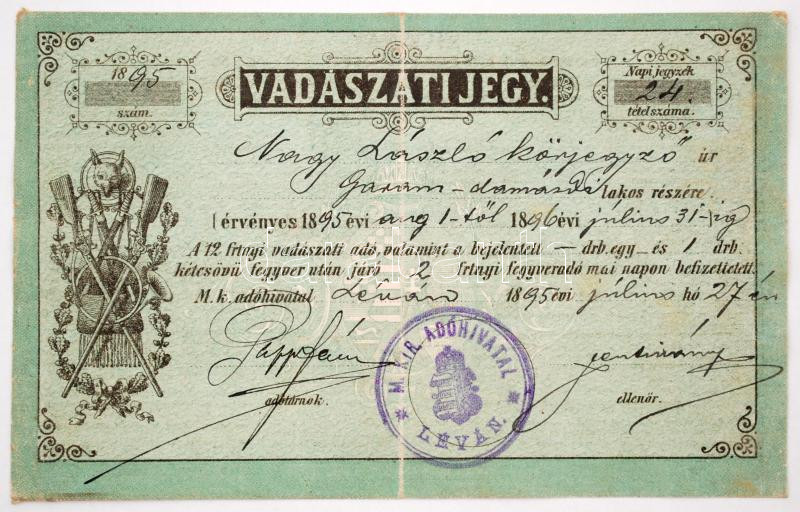 1895
szám.
VADÁSZATI JEGY.
Napi jegyzék
24.
tételszáma.
Nagy László körjegyző úr
Garam-damásdi lakos részére.
érvényes 1895 évi aug 1-től 1896 évi július 31-ig
A 12 frtnyi vadászati adó, valamint a bejelentett – drb. egy– és 1 drb.
kétcsövű fegyver után járó 2 frtnyi fegyveradó mai napon befizettetett.
M. k. adóhivatal Léván 1895 évi július hó 27 én
adótárnok.
ellenőr.
M. KIR. ADÓHIVATAL
LÉVÁN.